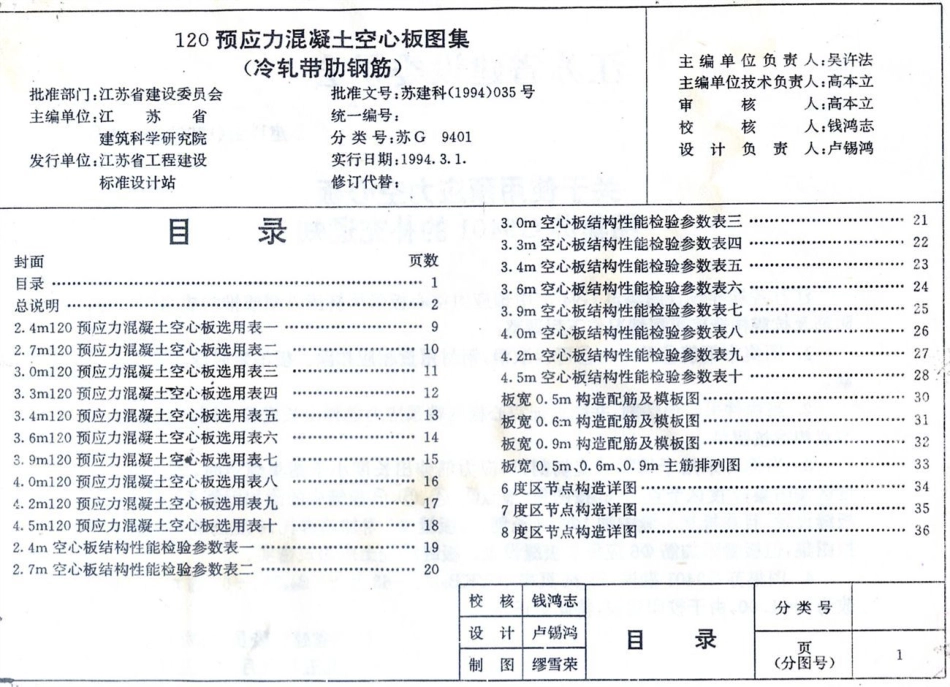 120 预应力混凝土空心板图集
（冷轧带肋钢筋）
批准部门：江苏省建设委员会
主编单位：江 苏 省
建筑科学研究院
发行单位：江苏省工程建设
标准设计站
批准文号：苏建科(1994)035 号
统一编号：
分 类 号：苏G 9401
实行日期：1994.3.1.
修订代替：
主 编 单 位 负 责 人：吴许法
主编单位技术负责人：高本立
审 核 人：高本立
校 核 人：钱鸿志
设 计 负 责 人：卢锡鸿
目 录
封面 页数
目录 …… 1
总说明 …… 2
2.4m120 预应力混凝土空心板选用表一 …… 9
2.7m120 预应力混凝土空心板选用表二 …… 10
3.0m120 预应力混凝土空心板选用表三 …… 11
3.3m120 预应力混凝土空心板选用表四 …… 12
3.4m120 预应力混凝土空心板选用表五 …… 13
3.6m120 预应力混凝土空心板选用表六 …… 14
3.9m120 预应力混凝土空心板选用表七 …… 15
4.0m120 预应力混凝土空心板选用表八 …… 16
4.2m120 预应力混凝土空心板选用表九 …… 17
4.5m120 预应力混凝土空心板选用表十 …… 18
2.4m 空心板结构性能检验参数表一 …… 19
2.7m 空心板结构性能检验参数表二 …… 20
3.0m 空心板结构性能检验参数表三 …… 21
3.3m 空心板结构性能检验参数表四 …… 22
3.4m 空心板结构性能检验参数表五 …… 23
3.6m 空心板结构性能检验参数表六 …… 24
3.9m 空心板结构性能检验参数表七 …… 25
4.0m 空心板结构性能检验参数表八 …… 26
4.2m 空心板结构性能检验参数表九 …… 27
4.5m 空心板结构性能检验参数表十 …… 28
板宽 0.5m 构造配筋及模板图 …… 30
板宽 0.6m 构造配筋及模板图 …… 31
板宽 0.9m 构造配筋及模板图 …… 32
板宽 0.5m、0.6m、0.9m 主筋排列图 …… 33
6 度区节点构造详图 …… 34
7 度区节点构造详图 …… 35
8 度区节点构造详图 …… 36
校 核 钱鸿志
设 计 卢锡鸿
制 图 缪雪荣
目 录
分 类 号
页
（分图号） 1